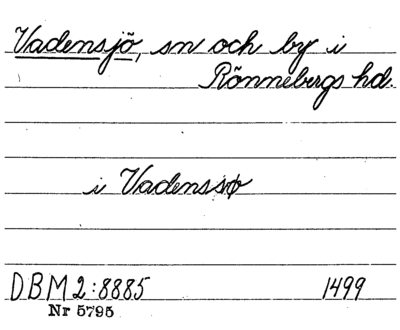 Vadensjö, sn och by i
Rönnebergs hd.
i Vadenssø
DBM 2:8885 1499
Nr 5795